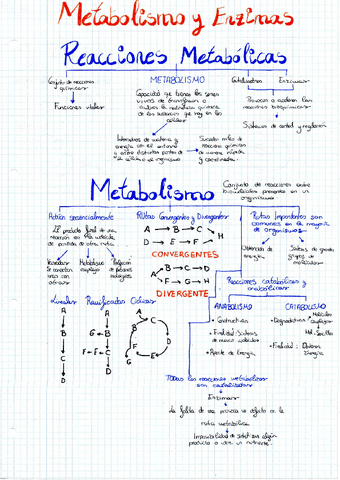 Metabolismo y Enzimas
Reacciones Metabólicas
Conjunto de reacciones
químicas
Funciones vitales
METABOLISMO
Capacidad que tienen los seres
vivos de transformar o
cambiar la naturaleza química
de las sustancias que hay en las
células
Intercambios de materia y
energía con el entorno
o entre distintas partes de
células u organismo
Suceden miles de
reacciones químicas
de manera rápida
y coordinadas
Catalizadores
Enzimas
Provocan o aceleran las
reacciones bioquímicas
Sistemas de control y regulación
Metabolismo
Conjunto de reacciones entre
biomoléculas presentes en un
organismo
Actúan secuencialmente
El producto final de una
reacción es la molécula
de partida de otra ruta
reacciones
se conectan
unas con
otras
Metabolismo
complejo
Lineales
A
B
C
D
Ramificadas
A
B
G
C
F
E
D
Cíclicas
A
C
B
E
D
F
G
Rutas Convergentes y Divergentes
A → B → C
D → E → F
H
CONVERGENTES
A
B → C → D
F → G → H
DIVERGENTE
Rutas Importantes son
comunes en la mayoría
de organismos
Obtención de
energía
Síntesis de grandes
grupos de
moléculas
Reacciones catabólicas y
anabólicas
ANABOLISMO
• Constructiva
• Finalidad: Síntesis
de nuevas moléculas
• Aporte de Energía
CATABOLISMO
• Degradativa
Moléculas
complejas
Mol. Sencillas
• Finalidad: Obtener
Energía
Todas las reacciones metabólicas
son catalizadas
Enzimas
La falta de una provoca un defecto en la
ruta metabólica
Imposibilidad de sintetizar algún
producto o usar un nutriente